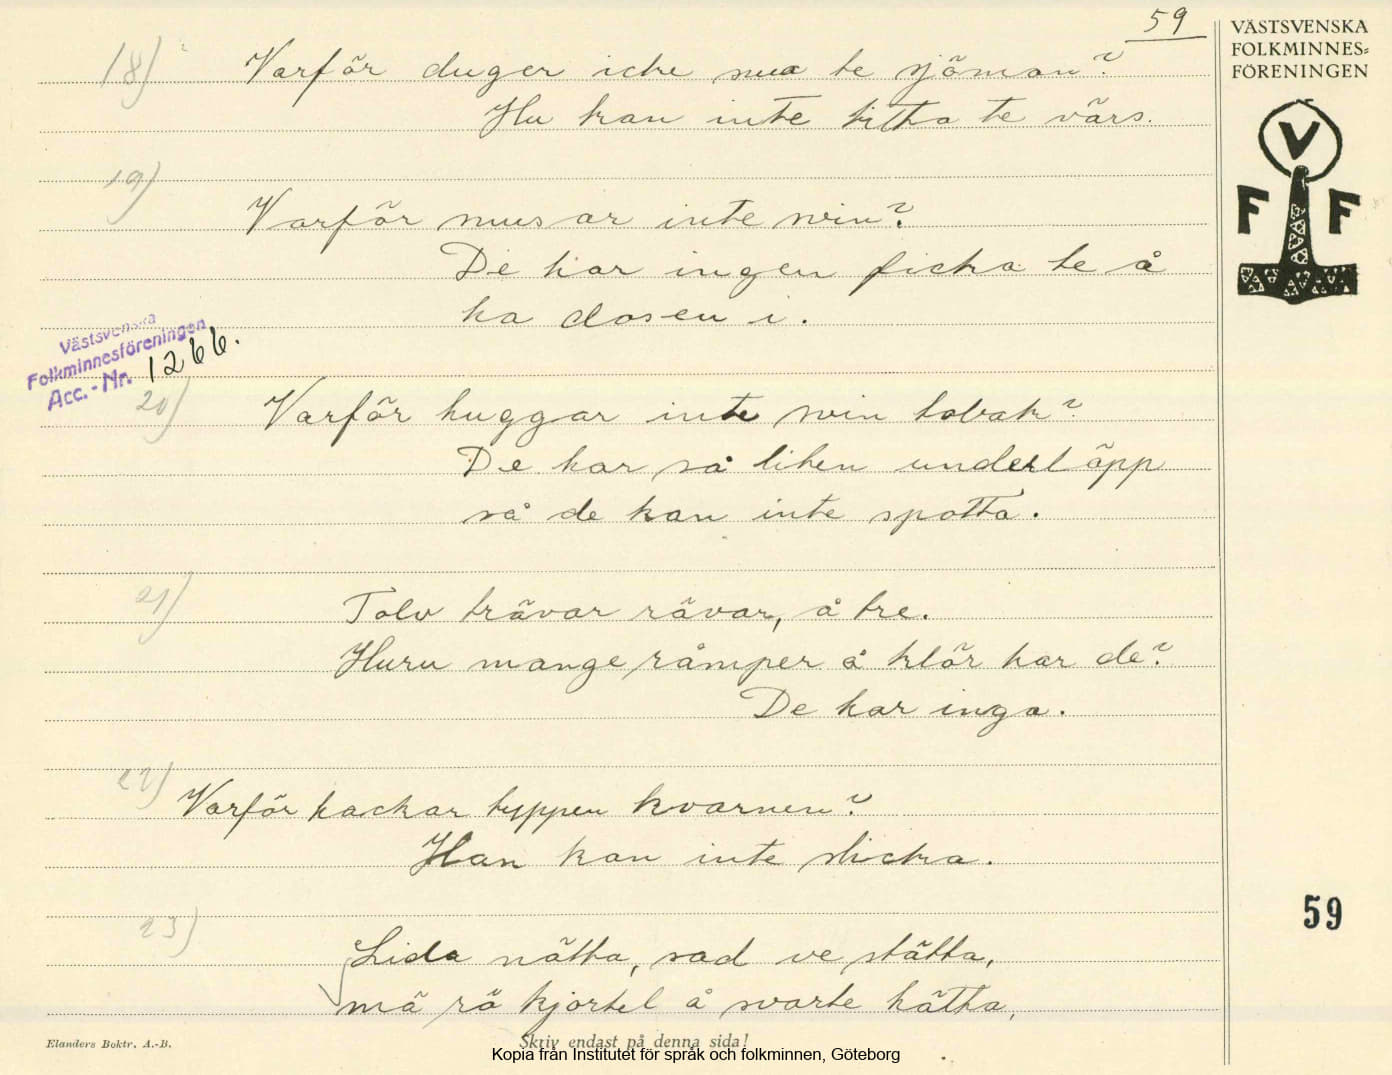 59
VÄSTSVENSKA
FOLKMINNES-
FÖRENINGEN
V
F F
18) Varför duger icke mua te sjöman?
Hu kan inte titta te värs.
19)
Varför snusar inte svin?
De har ingen ficka te å
ha dosen i.
Västsvenska
Folkminnesföreningen
Acc.-Nr. 1266.
20) Varför tuggar inte svin tobak?
De har så liten underläpp
så de kan inte spotta.
21) Tolv trävar rävar, å tre.
Huru mange råmper å klör har de?
De har inga.
22) Varför hackar tuppen kvarnen?
Han kan inte slicka.
59
23) Lida nätta, sad ve stätta,
mä rö kjortel å svarte hätta,
Elanders Boktr. A.-B.
Skriv endast på denna sida!
Kopia från Institutet för språk och folkminnen, Göteborg